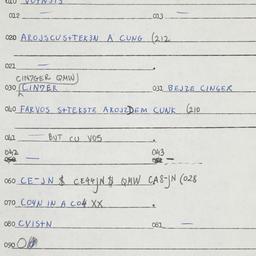 012 — 013 —
020 AROJSCUS+TEK3N A CUNG (212
021 —
CIN7GER QMW)
030 (CINGER 031 BEJZE CINGER
040 FARVOS S+TEKSTE AROJZDEM CUNK (210
041 — BUT CU VOS
042 — 043 —
060 CE-JN $ CE44JN $ QMW CA8-JN (028
070 CO4N IN A CO4 XX
080 CVIS+N 081 —
090